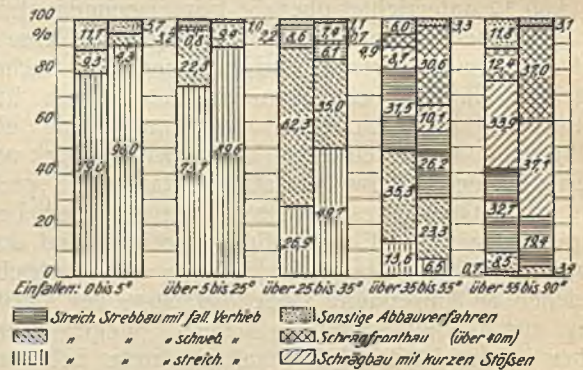 100
%
80
60
40
20
0
11,7
9,3
79,0
5,7
3,2
0,8
22,3
73,7
1,0
9,4
89,6
2,2
8,6
62,3
26,9
1,1
7,4
0,7
6,1
35,0
49,7
9,9
6,0
8,7
31,5
35,3
13,6
3,3
30,6
10,1
26,2
23,3
6,5
11,8
12,4
33,9
32,7
8,5
0,7
3,1
37,0
37,1
19,4
3,4
Einfallen: 0 bis 5° über 5 bis 25° über 25 bis 35° über 35 bis 55° über 55 bis 90°
Streich. Strebbau mit fall. Verhieb
" " " schweb. "
" " " streich. "
Sonstige Abbauverfahren
Schrägfrontbau (über 40m)
Schrägbau mit kurzen Stößen